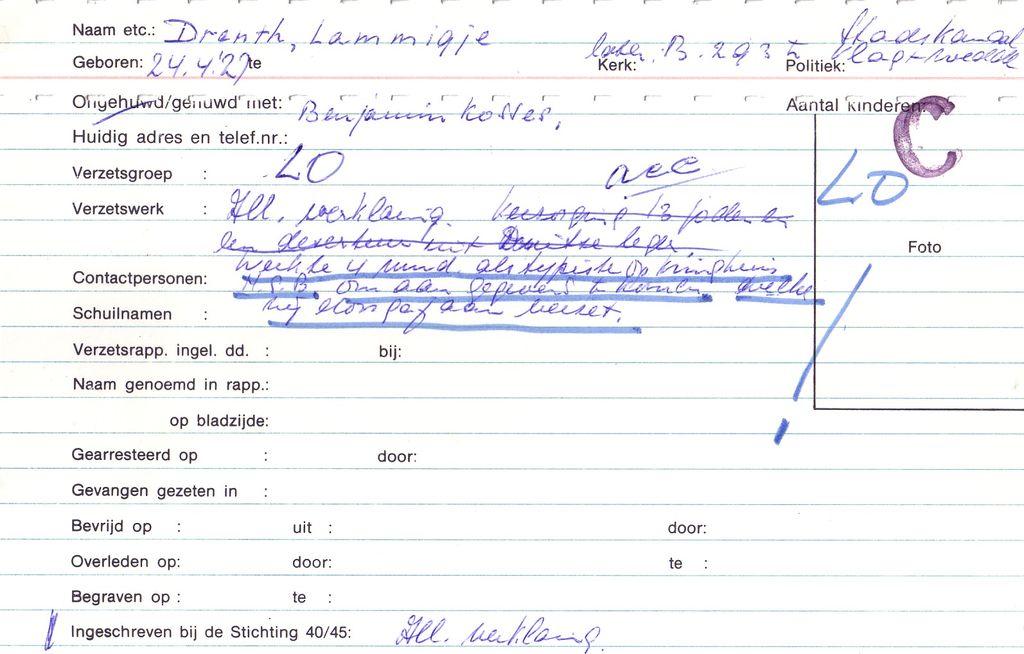 Naam etc.: Drenth, Lammigje Stadskanaal
Geboren: 24.4.27 te Kerk: B. 293 Politiek:
Ongehuwd/gehuwd met: Benjamin Kosses, Aantal kinderen: C
Huidig adres en telef.nr.:
Verzetsgroep : LO acc LO
Verzetswerk : Ill. werkzaam. Verzorging 13 joden en
een deserteur uit Duitse leger
werkte 4 mnd. als typiste op
Contactpersonen:
N.S.B. om aan gegevens te komen welke
Schuilnamen :
zij doorgaf aan verzet.
Foto
Verzetsrapp. ingel. dd. : bij:
Naam genoemd in rapp.:
op bladzijde:
Gearresteerd op : door:
Gevangen gezeten in :
Bevrijd op : uit : door:
Overleden op: door: te :
Begraven op : te :
Ingeschreven bij de Stichting 40/45: Ill. werkzaam.